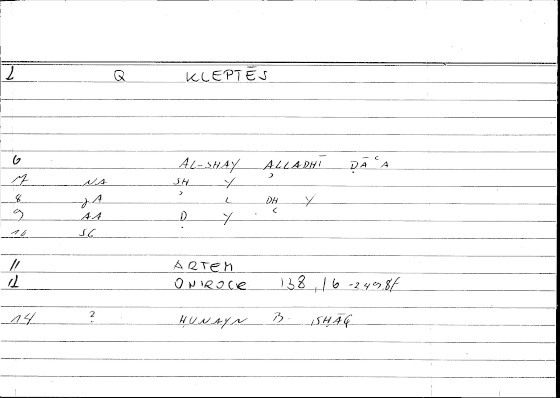 1 Q KLEPTĒS
6 AL-SHAY ALLADHĪ ḌĀʿA
7 NA SH Y ʾ
8 ʾ L DH Y
9 AA Ḍ Y ʿ
10 SG
11 ARTEM
12 ONIROCR 138,16
14 ? ḤUNAYN B. ISḤĀQ